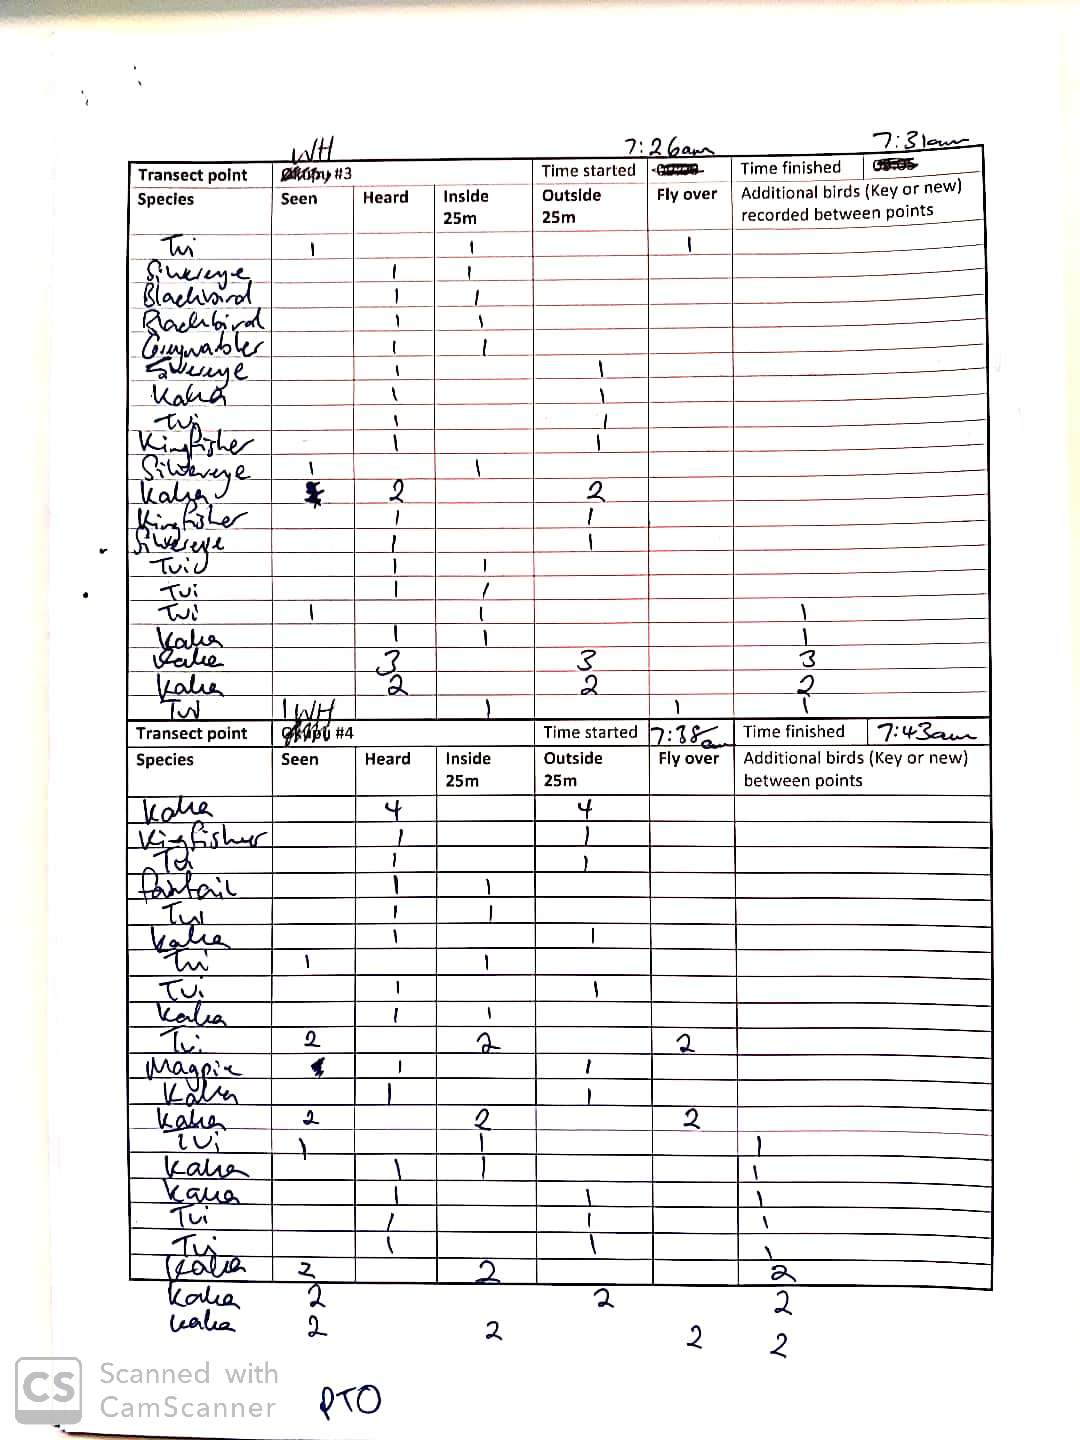 WH 7:26am 7:31am
Transect point #3 Time started Time finished
Species Seen Heard Inside 25m Outside 25m Fly over Additional birds (Key or new) recorded between points
Tui 1 1 1
Silvereye 1 1
Blackbird 1 1
Blackbird 1 1
Greywabler 1 1
Silvereye 1 1
Kaka 1 1
Tui 1 1
Kingfisher 1 1
Silvereye 1 1
Kaka 2 2
Kingfisher 1 1
Silvereye 1 1
Tui 1 1
Tui 1 1
Tui 1 1 1
Kaka 1 1 1
Kaka 3 3 3
Kaka 2 2 2
Tui 1 1 1 1
WH
Transect point #4 Time started 7:38am Time finished 7:43am
Species Seen Heard Inside 25m Outside 25m Fly over Additional birds (Key or new) between points
Kaka 4 4
Kingfisher 1 1
Tui 1 1
Fantail 1 1
Tui 1 1
Kaka 1 1
Tui 1 1
Tui 1 1
Kaka 1 1
Tui 2 2 2
Magpie 1 1
Kaka 1 1
Kaka 2 2 2
Tui 1 1 1
Kaka 1 1 1
Kaka 1 1 1
Tui 1 1 1
Tui 1 1 1
Kaka 2 2 2
Kaka 2 2 2
kaka 2 2 2 2
PTO
CS Scanned with
CamScanner